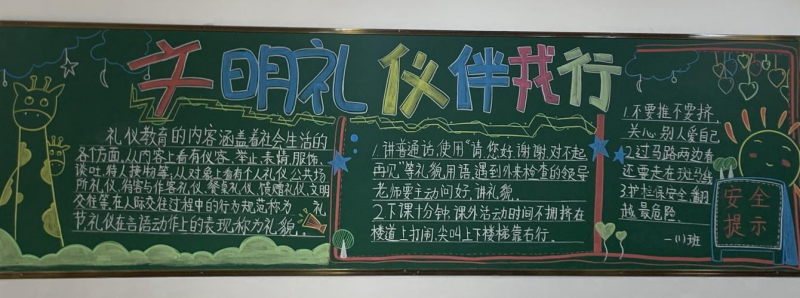 文明礼仪伴我行
礼仪教育的内容涵盖着社会生活的
各个方面,从内容上看有仪容、举止、表情、服饰、
谈吐、待人接物等;从对象上看有个人礼仪、公共场
所礼仪、待客与作客礼仪、餐桌礼仪、馈赠礼仪、文明
交往等。在人际交往过程中的行为规范称为 礼
节,礼仪在言语动作上的表现称为礼貌。
1讲普通访,使用“请,您好,谢谢,对不起
再见”等礼貌用语,遇到外来检查的领导
老师要主动问好,讲礼貌。
2下课十分钟,课外活动时间不拥挤在
楼道上打闹、尖叫,上下楼梯靠右行。
1不要推不要挤,
关心别人爱自己
2过马路两边看
还要走在斑马线
3护栏保安全,翻
越最危险
一(1)班
安全
提示